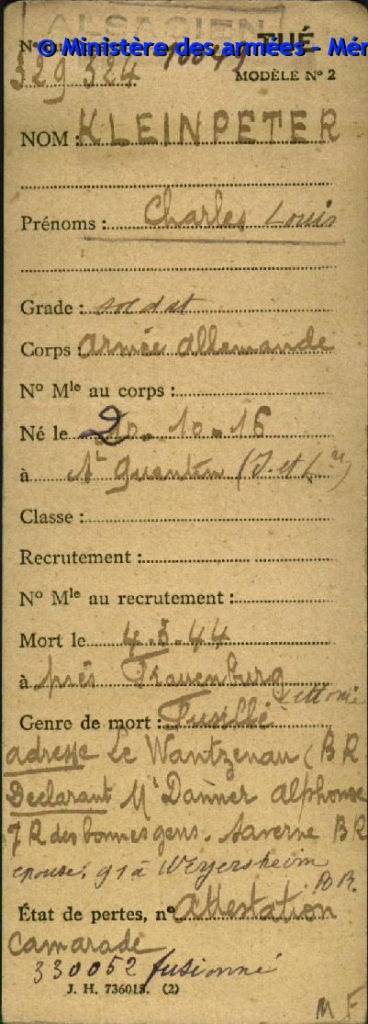 ALSACIEN
© Ministère des armées - Mém
TUÉ
329 324
MODÈLE N° 2
NOM : KLEINPETER
Prénoms : Charles Louis
Grade : soldat
Corps : Armée Allemande
N° Mle au corps :
Né le 20-10-16
à St Quentin (I. et L.)
Classe :
Recrutement :
N° Mle au recrutement :
Mort le 4.8.44
à près Frauenburg
Lettonie
Genre de mort : Fusillé
adresse Le Wantzenau (BR
Déclarant Mr Danner Alphonse
7 R des bonnes gens. Saverne BR
épouse, 91 à Weyersheim
BR.
État de pertes, n° Attestation
Camarade
330052 fusionné
J. H. 736013. (2)
M F